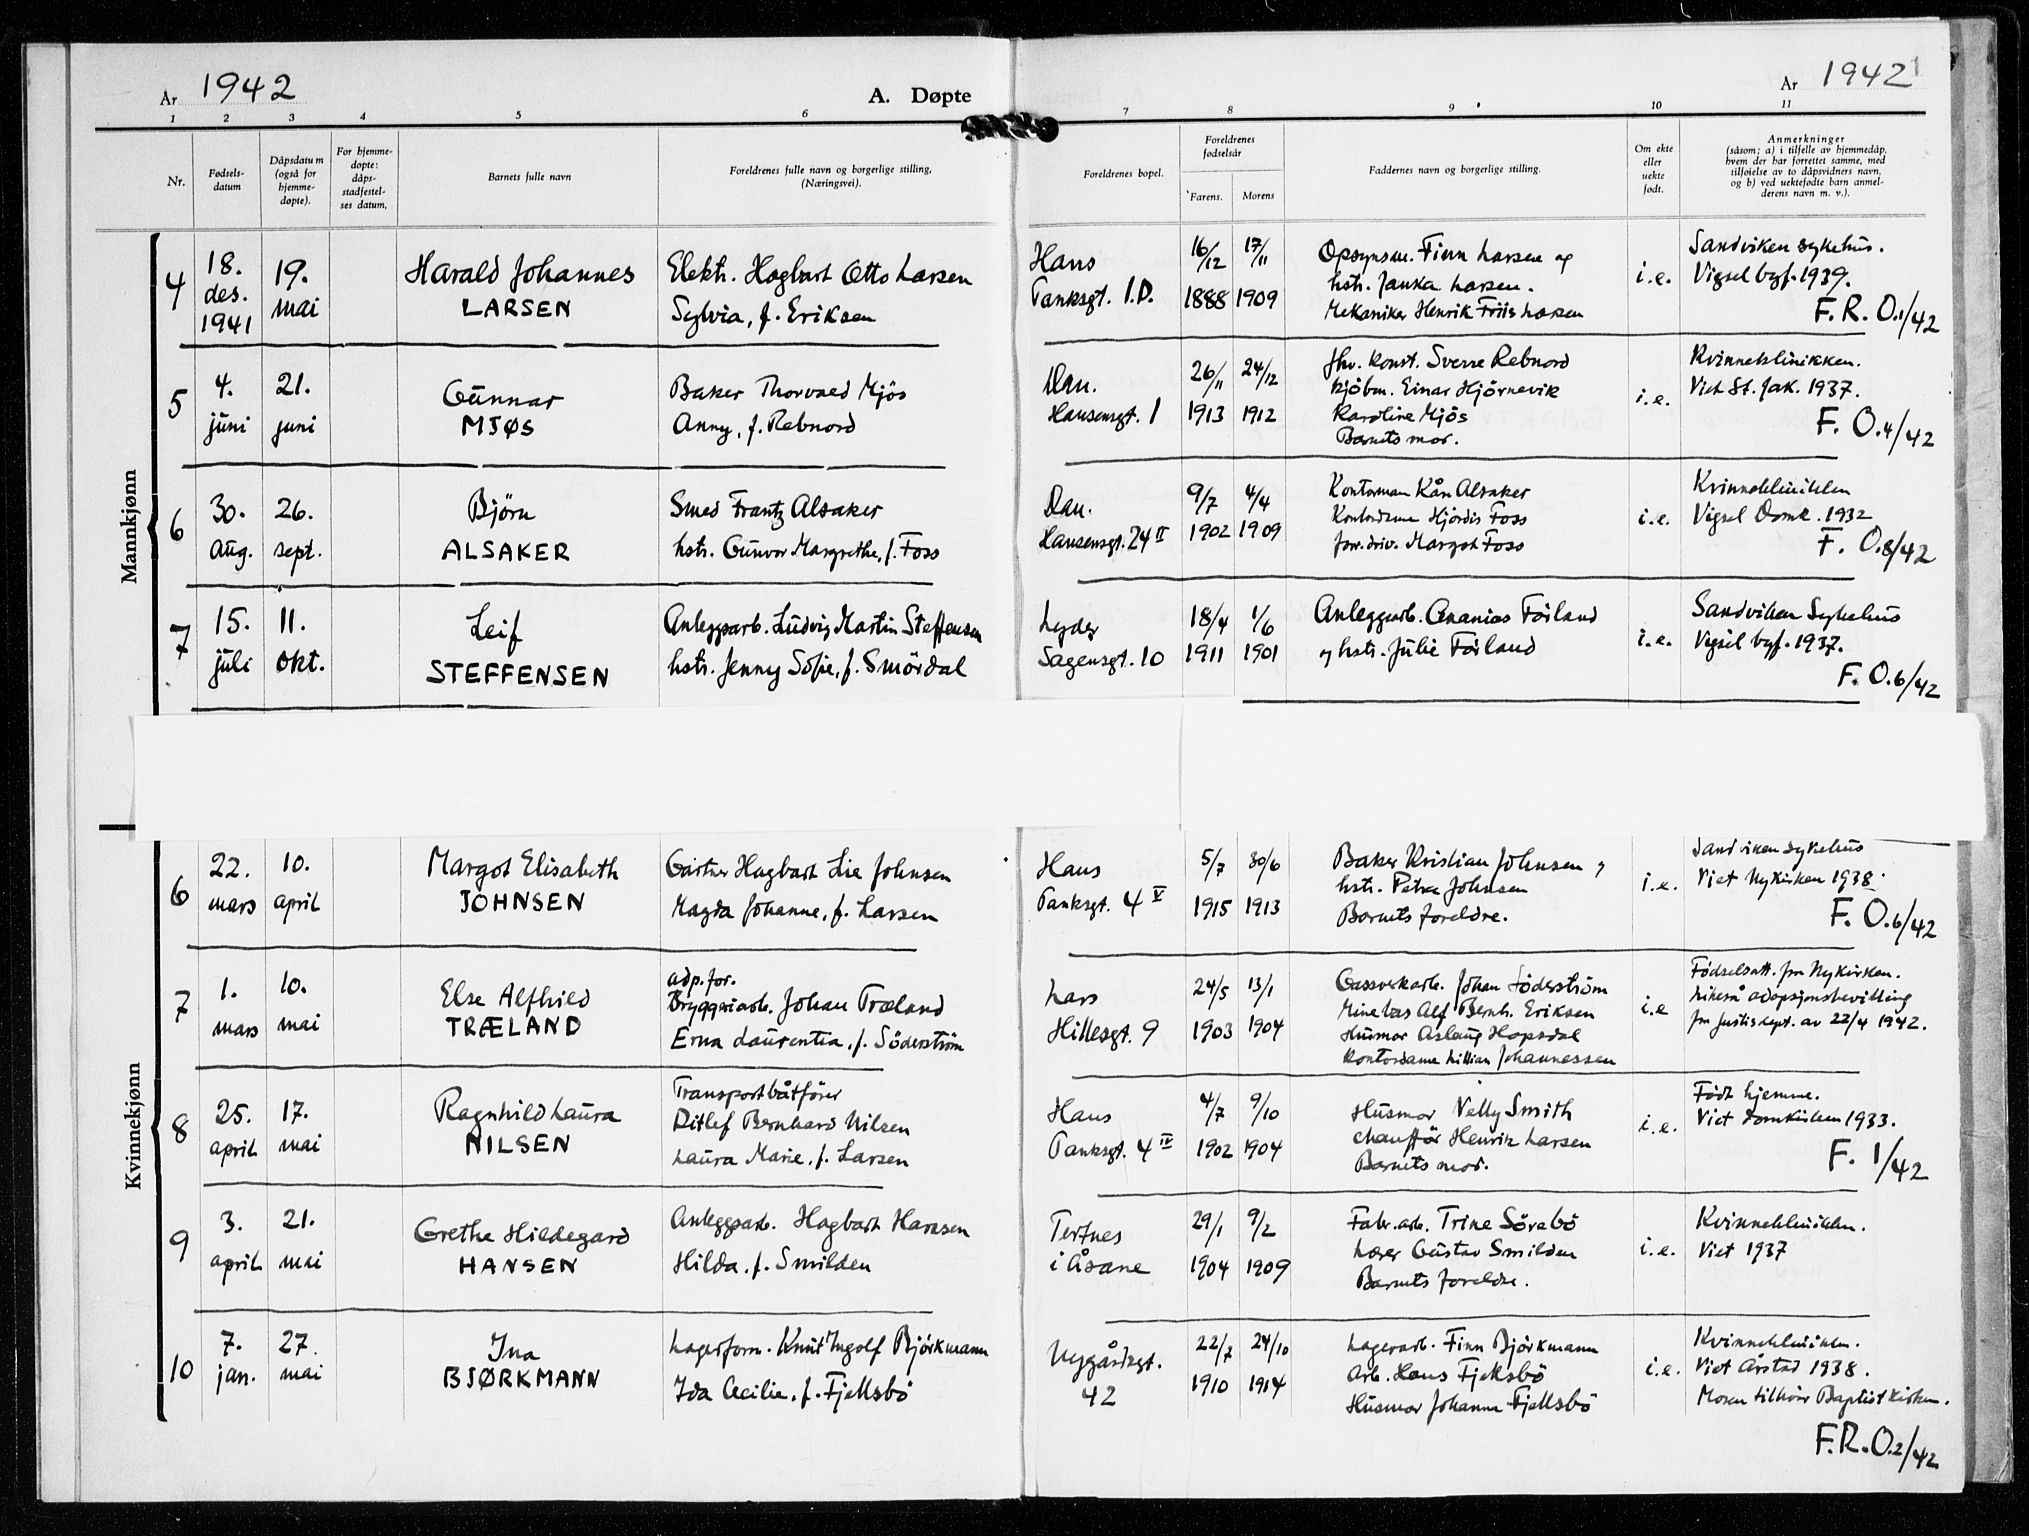 År 1942
A. Døpte
År 1942
1 2 3 4 5 6 7 8 9 10 11
Nr.
Fødsels-
datum
Dåpsdatum
(også for
hjemme-
døpte).
For hjemme-
døpte:
dåps-
stadfestel-
ses datum,
Barnets fulle navn
Foreldrenes fulle navn og borgerlige stilling,
(Næringsvei).
Foreldrenes bopel.
Foreldrenes
fødselsår
Farens. Morens
Faddernes navn og borgerlige stilling.
Om ekte
eller
uekte
født.
Anmerkninger
(såsom; a) i tilfelle av hjemmedåp,
hvem der har forrettet samme, med
tilføielse av to dåpsvidners navn,
og b) ved uektefødte barn anmel-
derens navn m. v.).
Mannkjønn
4
18.
des.
1941
19.
mai
Harald Johannes
LARSEN
Elektr. Hagbart Otto Larsen
Sylvia, f. Eriksen
Hans
Tanksgt. 1.D.
16/12
1888
17/11
1909
Opsynsm. Finn Larsen og
hstr. Janka Larsen.
Mekaniker Henrik Friis Larsen
i.e.
Sandviken sykehus.
Vigsel byf. 1939.
F. R. O.1/42
5
4.
juni
21.
juni
Gunnar
MJØS
Baker Thorvald Mjös
Anny, f. Rebnord
Dan.
Hansensgt. 1
26/11
1913
24/12
1912
fhv. konst. Sverre Rebnord
kjöbm. Einar Hjörnevik
Karoline Mjös
Barnets mor.
i.e.
Kvinneklinikken.
Viet St. Jak. 1937.
F. O.4/42
6
30.
aug.
26.
sept.
Björn
ALSAKER
Smed Frantz Alsaker
hstr. Gunvor Margrethe, f. Foss
Dan.
Hansensgt. 24 II
9/7
1902
4/4
1909
Kontorman Kån Alsaker
Kontordame Hjördis Foss
forr.driv. Margot Foss
i.e.
Kvinneklinikken
Vigsel Domk. 1932
F. O.8/42
7
15.
juli
11.
okt.
Leif
STEFFENSEN
Anleggsarb. Ludvig Martin Steffensen
hstr. Jenny Sofie, f. Smördal
Lyder
Sagensgt. 10
18/4
1911
1/6
1901
Anleggsarb. Ananias Förland
og hstr. Julie Förland
i.e.
Sandviken Sykehus
Vigsel byf. 1937.
F. O.6/42
Kvinnekjønn
6
22.
mars
10.
april
Margot Elisabeth
JOHNSEN
Gartner Hagbart Lie Johnsen
Magda Johanne, f. Larsen
Hans
Tanksgt. 4 V
5/7
1915
30/6
1913
Baker Kristian Johnsen og
hstr. Petra Johnsen
Barnets foreldre.
i.e.
Sandviken sykehus
Viet Nykirken 1938.
F. O.6/42
7
1.
mars
10.
mai
Else Alfhild
TRÆLAND
adp.for.
Bryggeriarb. Johan Træland
Erna Laurentia, f. Söderström
Lars
Hillesgt. 9
24/5
1903
13/1
1904
Gassverkarb. Johan Söderström
Alf Bernh. Eriksen
Husmor Aslaug Hopsdal
Kontordame Lillian Johannessen
i.e
Fødselsatt. fra Nykirken.
Likeså adopsjonsbevilling
fra Justisdept. av 22/4 1942.
8
25.
april
17.
mai
Ragnhild Laura
NILSEN
Transportbåtfører
Ditlef Bernhard Nilsen
Laura Marie, f. Larsen
Hans
Tanksgt. 4 IV
4/7
1902
9/10
1904
Husmor Nelly Smith
chauffør Henrik Larsen
Barnets mor.
i.e.
Født hjemme.
Viet Domkirken 1933.
F. 1/42
9
3.
april
21.
mai
Grethe Hildegard
HANSEN
Anleggsarb. Hagbart Hansen
Hilda, f. Smilden
Tertnes
i Åsane
29/1
1904
9/2
1909
Fabr.arb. Trine Sörebö
Gustav Smilden
Barnets foreldre.
i.e.
Kvinneklinikken.
Viet 1937
10
7.
jan.
27.
mai
Ina
BJØRKMANN
Lagerform. Knut Ingolf Björkmann
Ida Cecilie, f. Fjellsbö
Nygårdsgt.
42
22/7
1910
24/10
1914
Lagerarb. Finn Björkmann
Arb. Hans Fjellsbö
Husmor Johanne Fjellsbö
i.e.
Kvinneklinikken.
Viet Årstad 1938.
Moren tilhörer Baptistkirken.
F.R.O.2/42